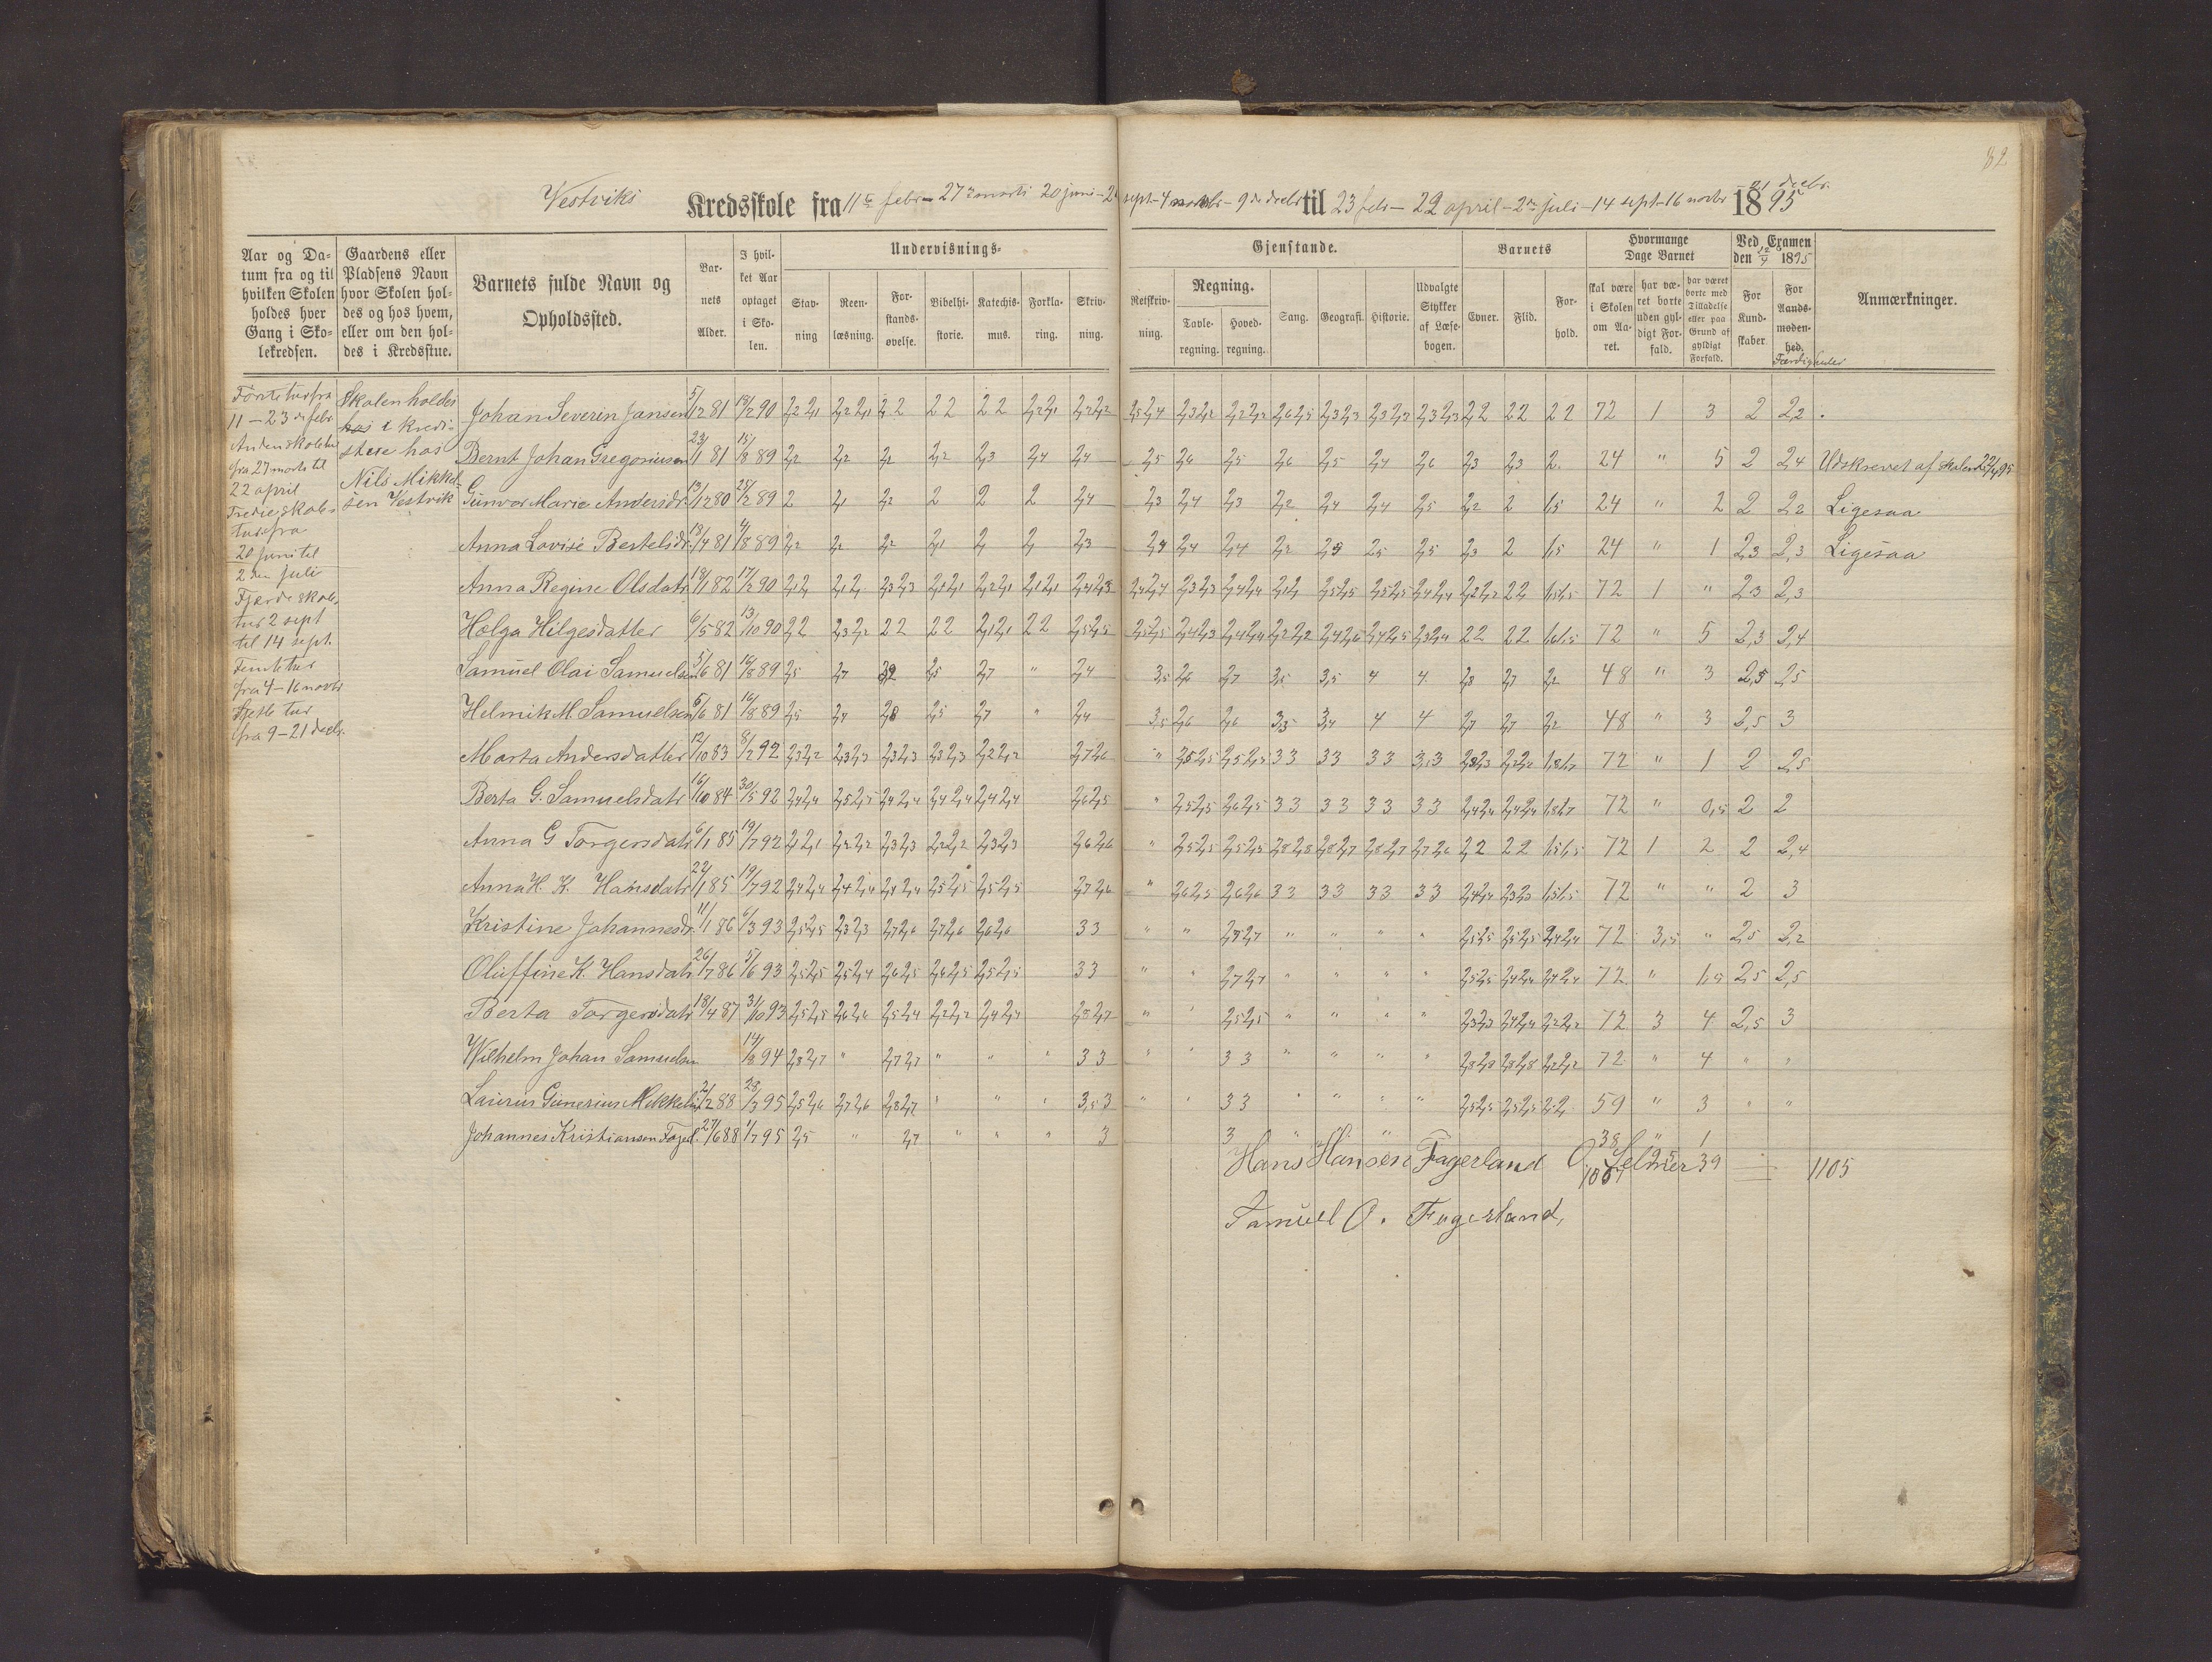 82
Vestviks Kredsskole fra 11te febr – 27de marts 20 juni – 2 sept – 4 novbr – 9de decbr til 23 febr – 22 april – 2den juli – 14 sept – 16 novbr – 21 decbr. 1895
Aar og Datum fra og til hvilken Skolen holdes hver Gang i Skolekredsen.
Gaardens eller Pladsens Navn hvor Skolen holdes og hos hvem, eller om den holdes i Kredsstue.
Barnets fulde Navn og Opholdssted.
Barnets Alder.
I hvilket Aar optaget i Skolen.
Undervisnings-
Stavning
Reenlæsning.
Forstandsøvelse.
Bibelhistorie.
Katechismus.
Forklaring.
Skrivning.
Gjenstande.
Retskrivning.
Regning.
Tavleregning.
Hovedregning.
Sang.
Geografi.
Historie.
Udvalgte Stykker af Læsebogen.
Barnets
Evner.
Flid.
Forhold.
Hvormange Dage Barnet
skal være i Skolen om Aaret.
har været borte uden gyldigt Forfald.
har været borte med Tilladelse eller paa Grund af gyldigt Forfald.
Ved Examen den 12/7 1895
For Kundskaber
For Aandsmodenhed.
Færdigheder
Anmærkninger.
Første tur fra
11 – 23de febr
Anden skoletur
fra 27 marts til
22 april
Tredie skole-
tur fra
20 juni til
2den juli
Fjerde skole-
tur 2 sept
til 14 sept.
Femte tur
fra 4 – 16 novbr
Sjette tur
fra 9 – 21 decbr.
Skolen holdes
hos i Kreds-
stue hos
Nils Mikkel-
sen Vestvik
Johan Severin Jansen 5/12 81 13/2 90 2,2 2,1 2,2 2,1 2 2 2 2 2 2 2,2 2,1 2,2 2,2 2,5 2,4 2,3 2,2 2,2 2,2 2,6 2,5 2,3 2,3 2,3 2,3 2,3 2,3 2,2 2 2 2 2 72 1 3 2 2,2
Bernt Johan Gregoriusen 23/1 81 15/8 89 2,2 2,2 2,2 2,2 2,3 2,4 2,4 2,5 2,6 2,5 2,6 2,5 2,4 2,6 2,3 2,3 2 24 " 5 2 2,4 Udskrevet af skolen 22/4 95
Gunvor Marie Andersdr 13/12 80 28/2 89 2 2,1 2,2 2 2 2 2,4 2,3 2,4 2,3 2,2 2,4 2,4 2,5 2,2 2 1,5 24 " 2 2 2,2 Ligesaa
Anna Lovise Bertelsdr 18/4 81 4/8 89 2,2 2,2 2,2 2,1 2 2 2,3 2,4 2,4 2,4 2,2 2,4 2,5 2,5 2,3 2 1,5 24 " 1 2,3 2,3 Ligesaa
Anna Regine Olsdatr 18/1 82 17/2 90 2,1 2 2,1 2 2,3 2,3 2,1 2,1 2,2 2,1 2,1 2,1 2,4 2,3 2,4 2,4 2,3 2,3 2,4 2,4 2,1 2 2,5 2,5 2,5 2,5 2,4 2,4 2,2 2,2 2 2 1,5 1,5 72 1 " 2,3 2,3
Hælga Hilgesdatter 6/5 82 13/10 90 2 2 2,3 2,2 2 2 2 2 2,1 2,1 2 2 2,5 2,5 2,5 2,5 2,4 2,3 2,4 2,4 2,2 2,2 2,4 2,6 2,4 2,5 2,3 2,4 2 2 2 2 1,6 1,5 72 " 5 2,3 2,4
Samuel Olai Samuelsen 5/6 81 16/8 89 2,5 2,7 2,9 2,5 2,7 " 2,4 3,5 2,6 2,7 3,5 3,5 4 4 2,8 2,7 2,2 48 " 3 2,5 2,5
Helmik M. Samuelsen 5/6 81 16/8 89 2,5 2,4 2,8 2,5 2,7 " 2,4 3,5 2,6 2,6 3,5 3,4 4 4 2,7 2,7 2,2 48 " 3 2,5 3
Marta Andersdatter 12/10 83 8/2 92 2,3 2,2 2,3 2,3 2,3 2,3 2,3 2,3 2,2 2,2 2,7 2,6 " 2,5 2,5 2,5 2,5 3 3 3 3 3 3 3,5 3 2,3 2,3 2,2 2,2 1,8 1,7 72 " 1 2 2,5
Berta G. Samuelsdatr 16/10 84 30/5 92 2,4 2,4 2,5 2,5 2,4 2,4 2,4 2,4 2,4 2,4 2,6 2,5 " 2,5 2,5 2,6 2,5 3 3 3 3 3 3 3 3 2,4 2,4 2,4 2,4 1,8 1,7 72 " 0,5 2 2
Anna G Torgersdatr 6/1 85 19/7 92 2,2 2,1 2,2 2,2 2,3 2,3 2,2 2,2 2,3 2,3 2,6 2,6 " 2,5 2,5 2,5 2,5 2,8 2,8 2,8 2,7 2,8 2,7 2,7 2,6 2,2 2 2 1,5 1,5 72 1 2 2 2,4
Anna H. K. Hansdatr 22/1 85 19/7 92 2,4 2,4 2,4 2,4 2,4 2,4 2,5 2,5 2,5 2,5 2,7 2,6 " 2,6 2,5 2,6 2,6 3 3 3 3 3 3 3 3 2,4 2,4 2,3 2,3 1,5 1,5 72 " " 2 3
Kristine Johannesdr. 11/1 86 6/3 93 2,5 2,5 2,3 2,3 2,7 2,6 2,7 2,6 2,6 2,6 3 3 " " 2,7 2,7 " " " " 2,5 2,5 2,5 2,5 2,4 2,4 72 3,5 " 2,5 2,2
Oluffine K. Hansdatr 26/7 86 5/6 93 2,5 2,5 2,5 2,4 2,6 2,5 2,6 2,5 2,5 2,5 3 3 " " 2,7 2,7 " " " " 2,5 2,5 2,4 2,4 2,4 2,4 72 " 1,5 2,5 2,5
Berta Torgersdatr 18/4 87 31/10 93 2,5 2,5 2,6 2,6 2,5 2,4 2,2 2,2 2,4 2,4 2,8 2,7 " " 2,5 2,5 " " " " 2,3 2,3 2,4 2,4 2,2 2,2 72 3 4 2,5 3
Wilhelm Johan Samuelsen 14/8 94 2,8 2,7 " 2,7 2,7 " " " 3 3 " " 3 3 " " " " 2,8 2,8 2,8 2,8 2,2 2,2 72 " 4 " "
Laurus Gunerius Mikkels. 2/2 88 28/3 95 2,5 2,6 2,7 2,6 2,8 2,7 " " " 3,5 3 " " 3 3 " " " " 2,5 2,5 2,5 2,5 2,2 59 " 3 " "
Johannes Kristiansen Fagerl. 27/6 88 1/7 95 2,5 " 2,7 " " " 3 3 " " " 38 " 1
Hans Hansen Fagerland O Seldner 39 1105
Samuel O. Fagerland,